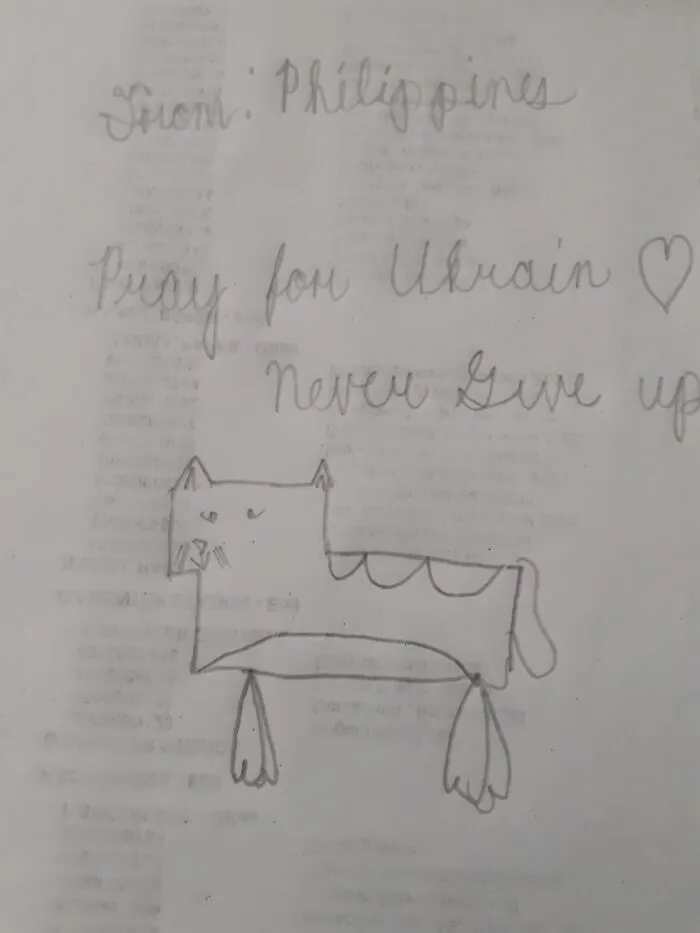 From: Philippines
Pray for Ukrain ♡
Never Give up